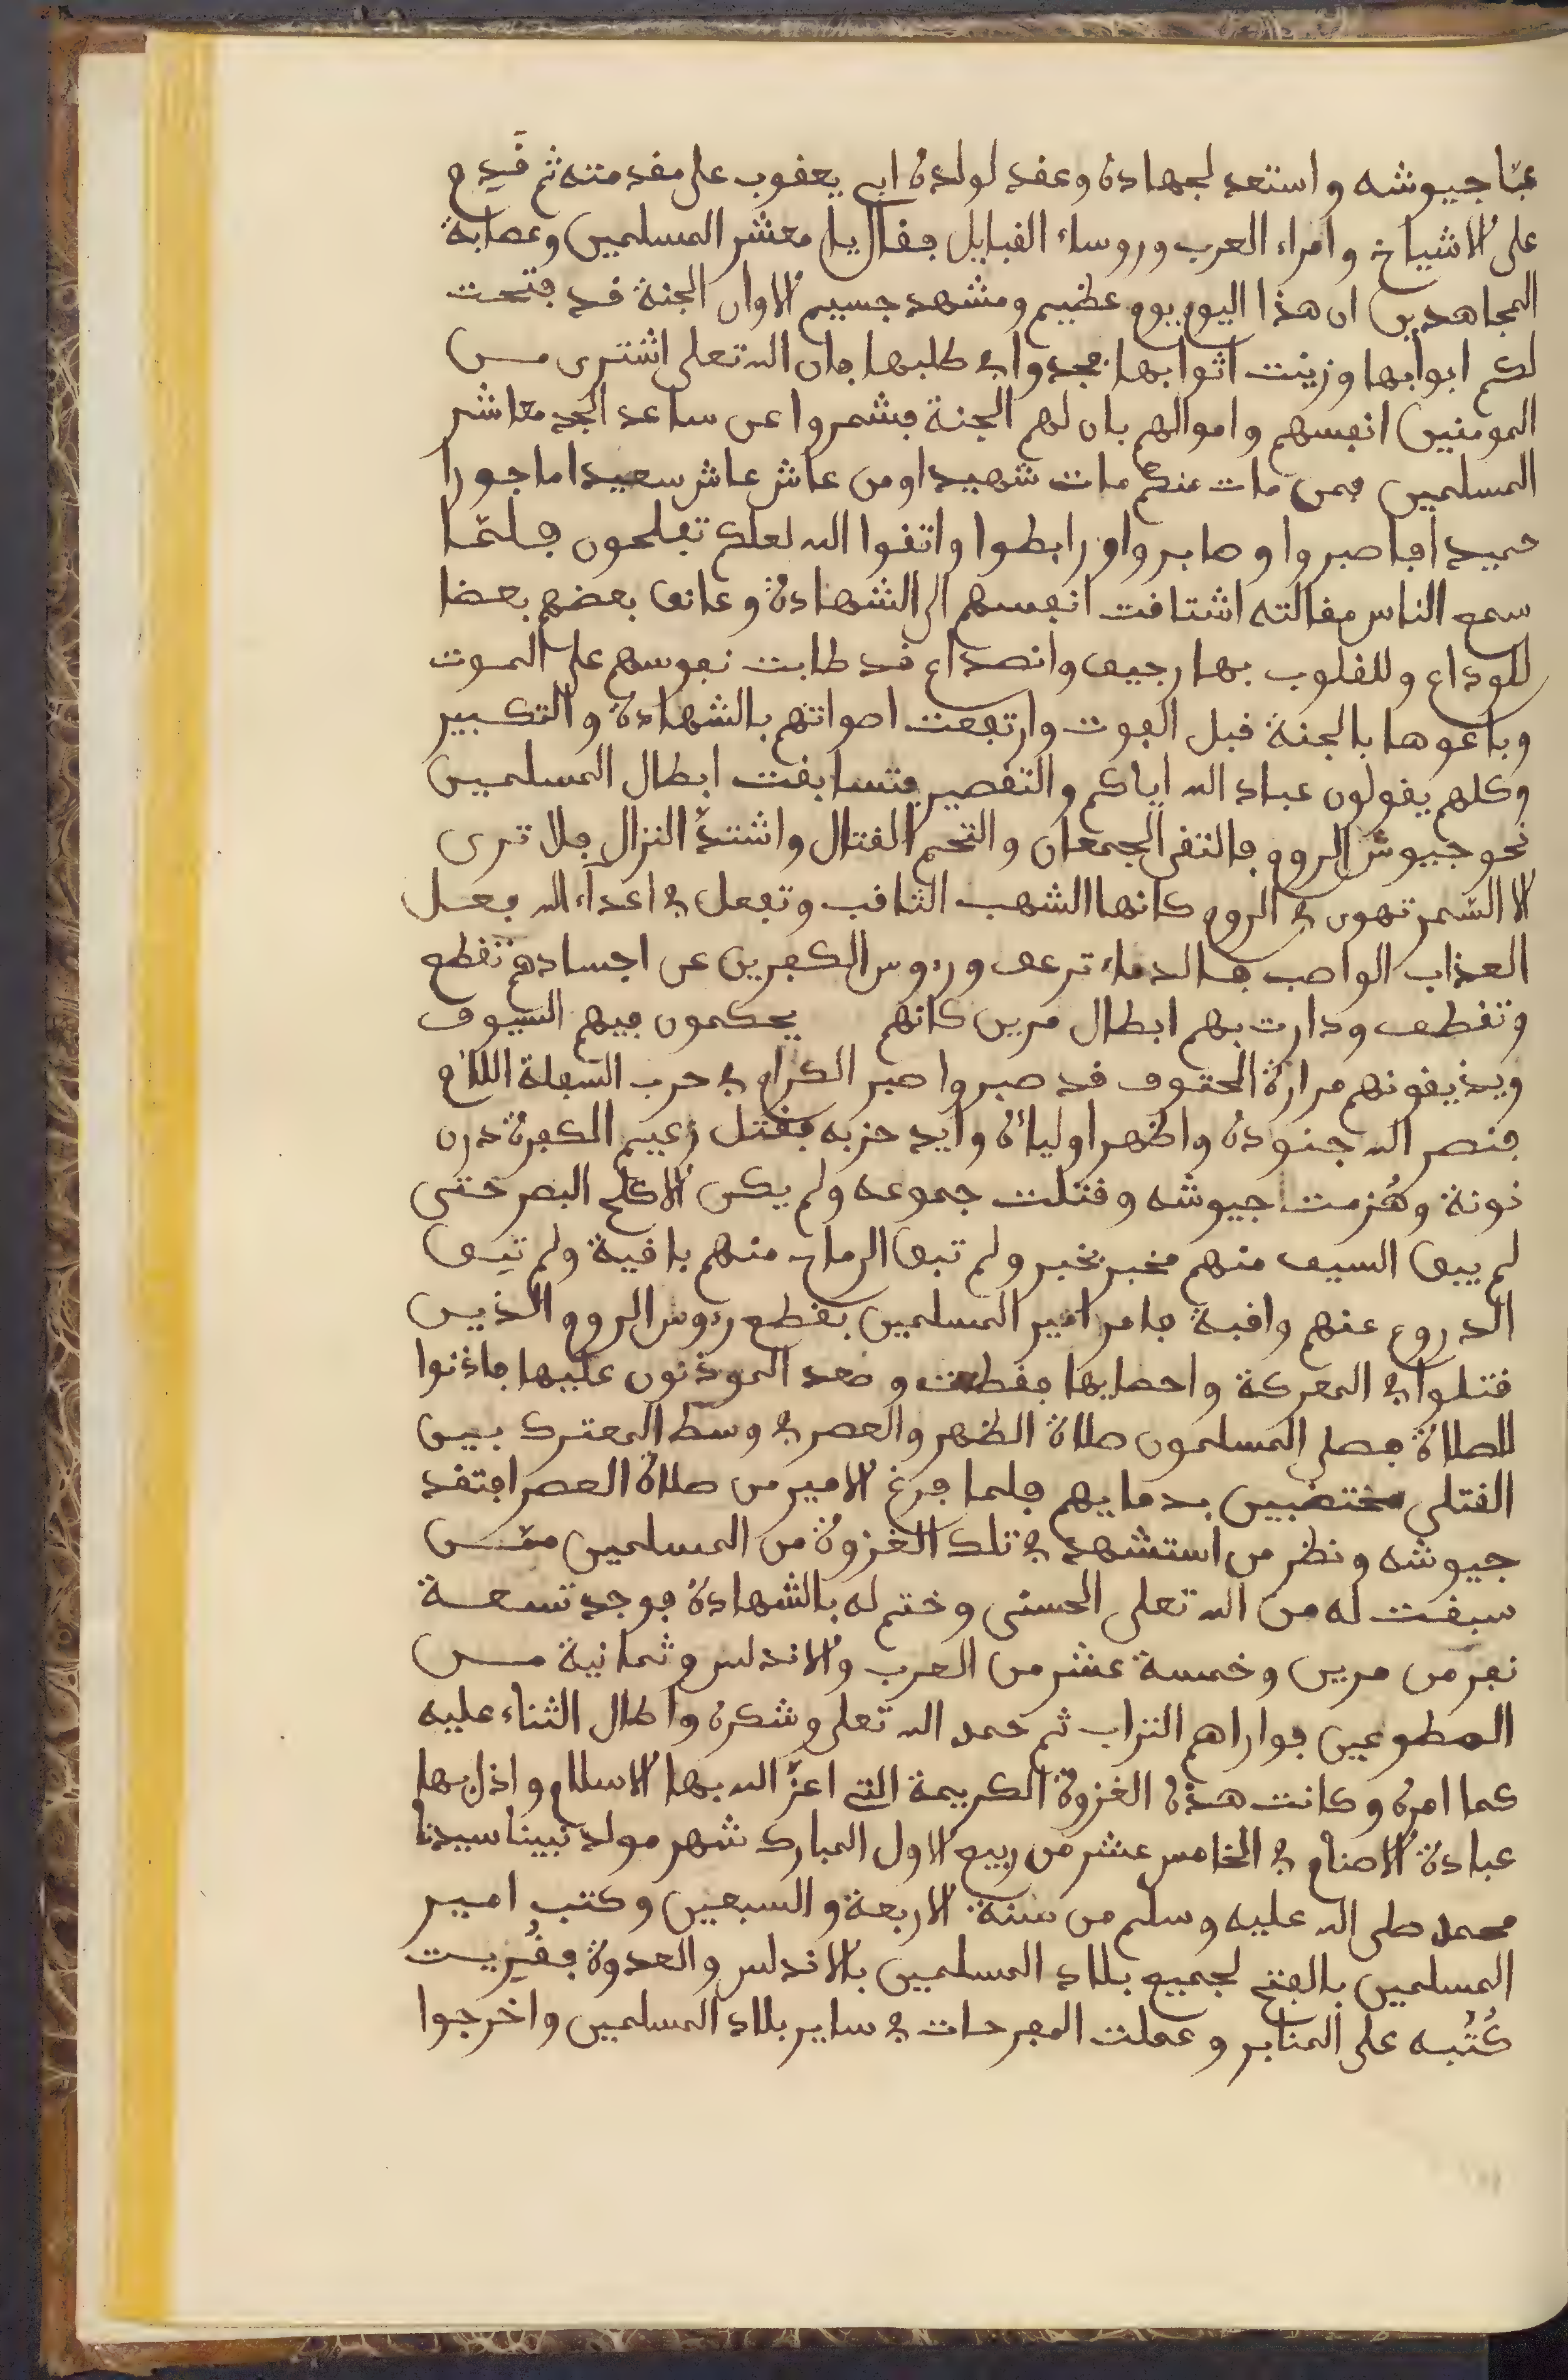 عبّا جيوشه واستعد لجهاده وعقد لولده ابي يعقوب على مقدمته ثم قدم
على الاشياخ وامراء العرب وروساء القبايل فقال يا معشر المسلمين وعصابة
المجاهدين ان هذا اليوم يوم عظيم ومشهد جسيم الا وان الجنة قد فتحت
لكم ابوابها وزينت اثوابها فجدوا في طلبها فان الله تعلى اشترى من
المومنين انفسهم واموالهم بان لهم الجنة فشمروا عن ساعد الجد معاشر
المسلمين فمن مات منكم مات شهيدا ومن عاش عاش سعيدا ماجورا
حميدا فاصبروا وصابروا ورابطوا واتقوا الله لعلكم تفلحون فلمّا
سمع الناس مقالته اشتاقت انفسهم الى الشهادة وعانق بعضهم بعضا
للوداع وللقلوب بها رجيف وانصداع قد طابت نفوسهم على الموت
وباعوها بالجنة قبل الفوت وارتفعت اصواتهم بالشهادة والتكبير
وكلهم يقولون عباد الله اياكم والتقصير فتسابقت ابطال المسلمين
نحو جيوش الروم فالتقى الجمعان والتحم القتال واشتدّ النزال فلا ترى
الا السّمر تهوى في الروم كانها الشهب الثاقب وتفعل في اعداء الله فعل
العذاب الواصب فالدماء ترعف وروس الكفرين عن اجسادهم تقطع
وتقطف ودارت بهم ابطال مرين كانهم يحكمون فيهم السيوف
ويذيقونهم مرارة الحتوف قد صبروا صبر الكرام في حرب السّفلة اللئام
فنصر الله جنوده واظهر اولياءه وايد حزبه فقتل زعيم الكفرة درن
نونة وهُزمت جيوشه وقتلت جموعه ولم يكن الا كلمح البصر حتى
لم يبق السيف منهم مخبر يخبر ولم تبق الرماح منهم باقية ولم تبق
الدروع عنهم واقية فامر امير المسلمين بقطع روس الروم الذين
قتلوا في المعركة واحصايها فقطعت وصعد الموذنون عليها فاذنوا
للصلاة فصلى المسلمون صلاة الظهر والعصر في وسط المعترك بين
القتلى مختضبين بدمايهم فلما فرغ الامير من صلاة العصر افتقد
جيوشه ونظر من استشهد في تلك الغزوة من المسلمين ممّن
سبقت له من الله تعلى الحسنى وختم له بالشهادة فوجد تسعة
نفر من مرين وخمسة عشر من العرب والاندلس وثمانية من
المطوعين فواراهم التراب ثم حمد الله تعلى وشكره واطال الثناء عليه
كما امره وكانت هذه الغزوة الكريمة التي اعزّ الله بها الاسلام واذل بها
عبادة الاصنام في الخامس عشر من ربيع الاول المبارك شهر مولد نبينا سيدنا
محمد صلى الله عليه وسلم من سنة الاربعة والسبعين وكتب امير
المسلمين بالفتح لجميع بلاد المسلمين بالاندلس والعدوة فقُرِيت
كُتُبه على المنابر وعملت المفرحات في ساير بلاد المسلمين واخرجوا